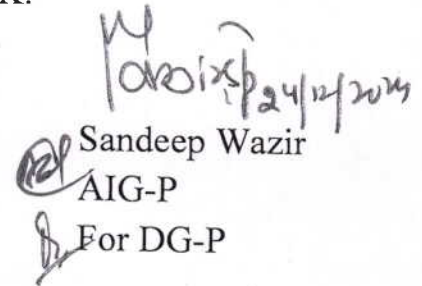 K.
24/12/2024
Sandeep Wazir
AIG-P
For DG-P